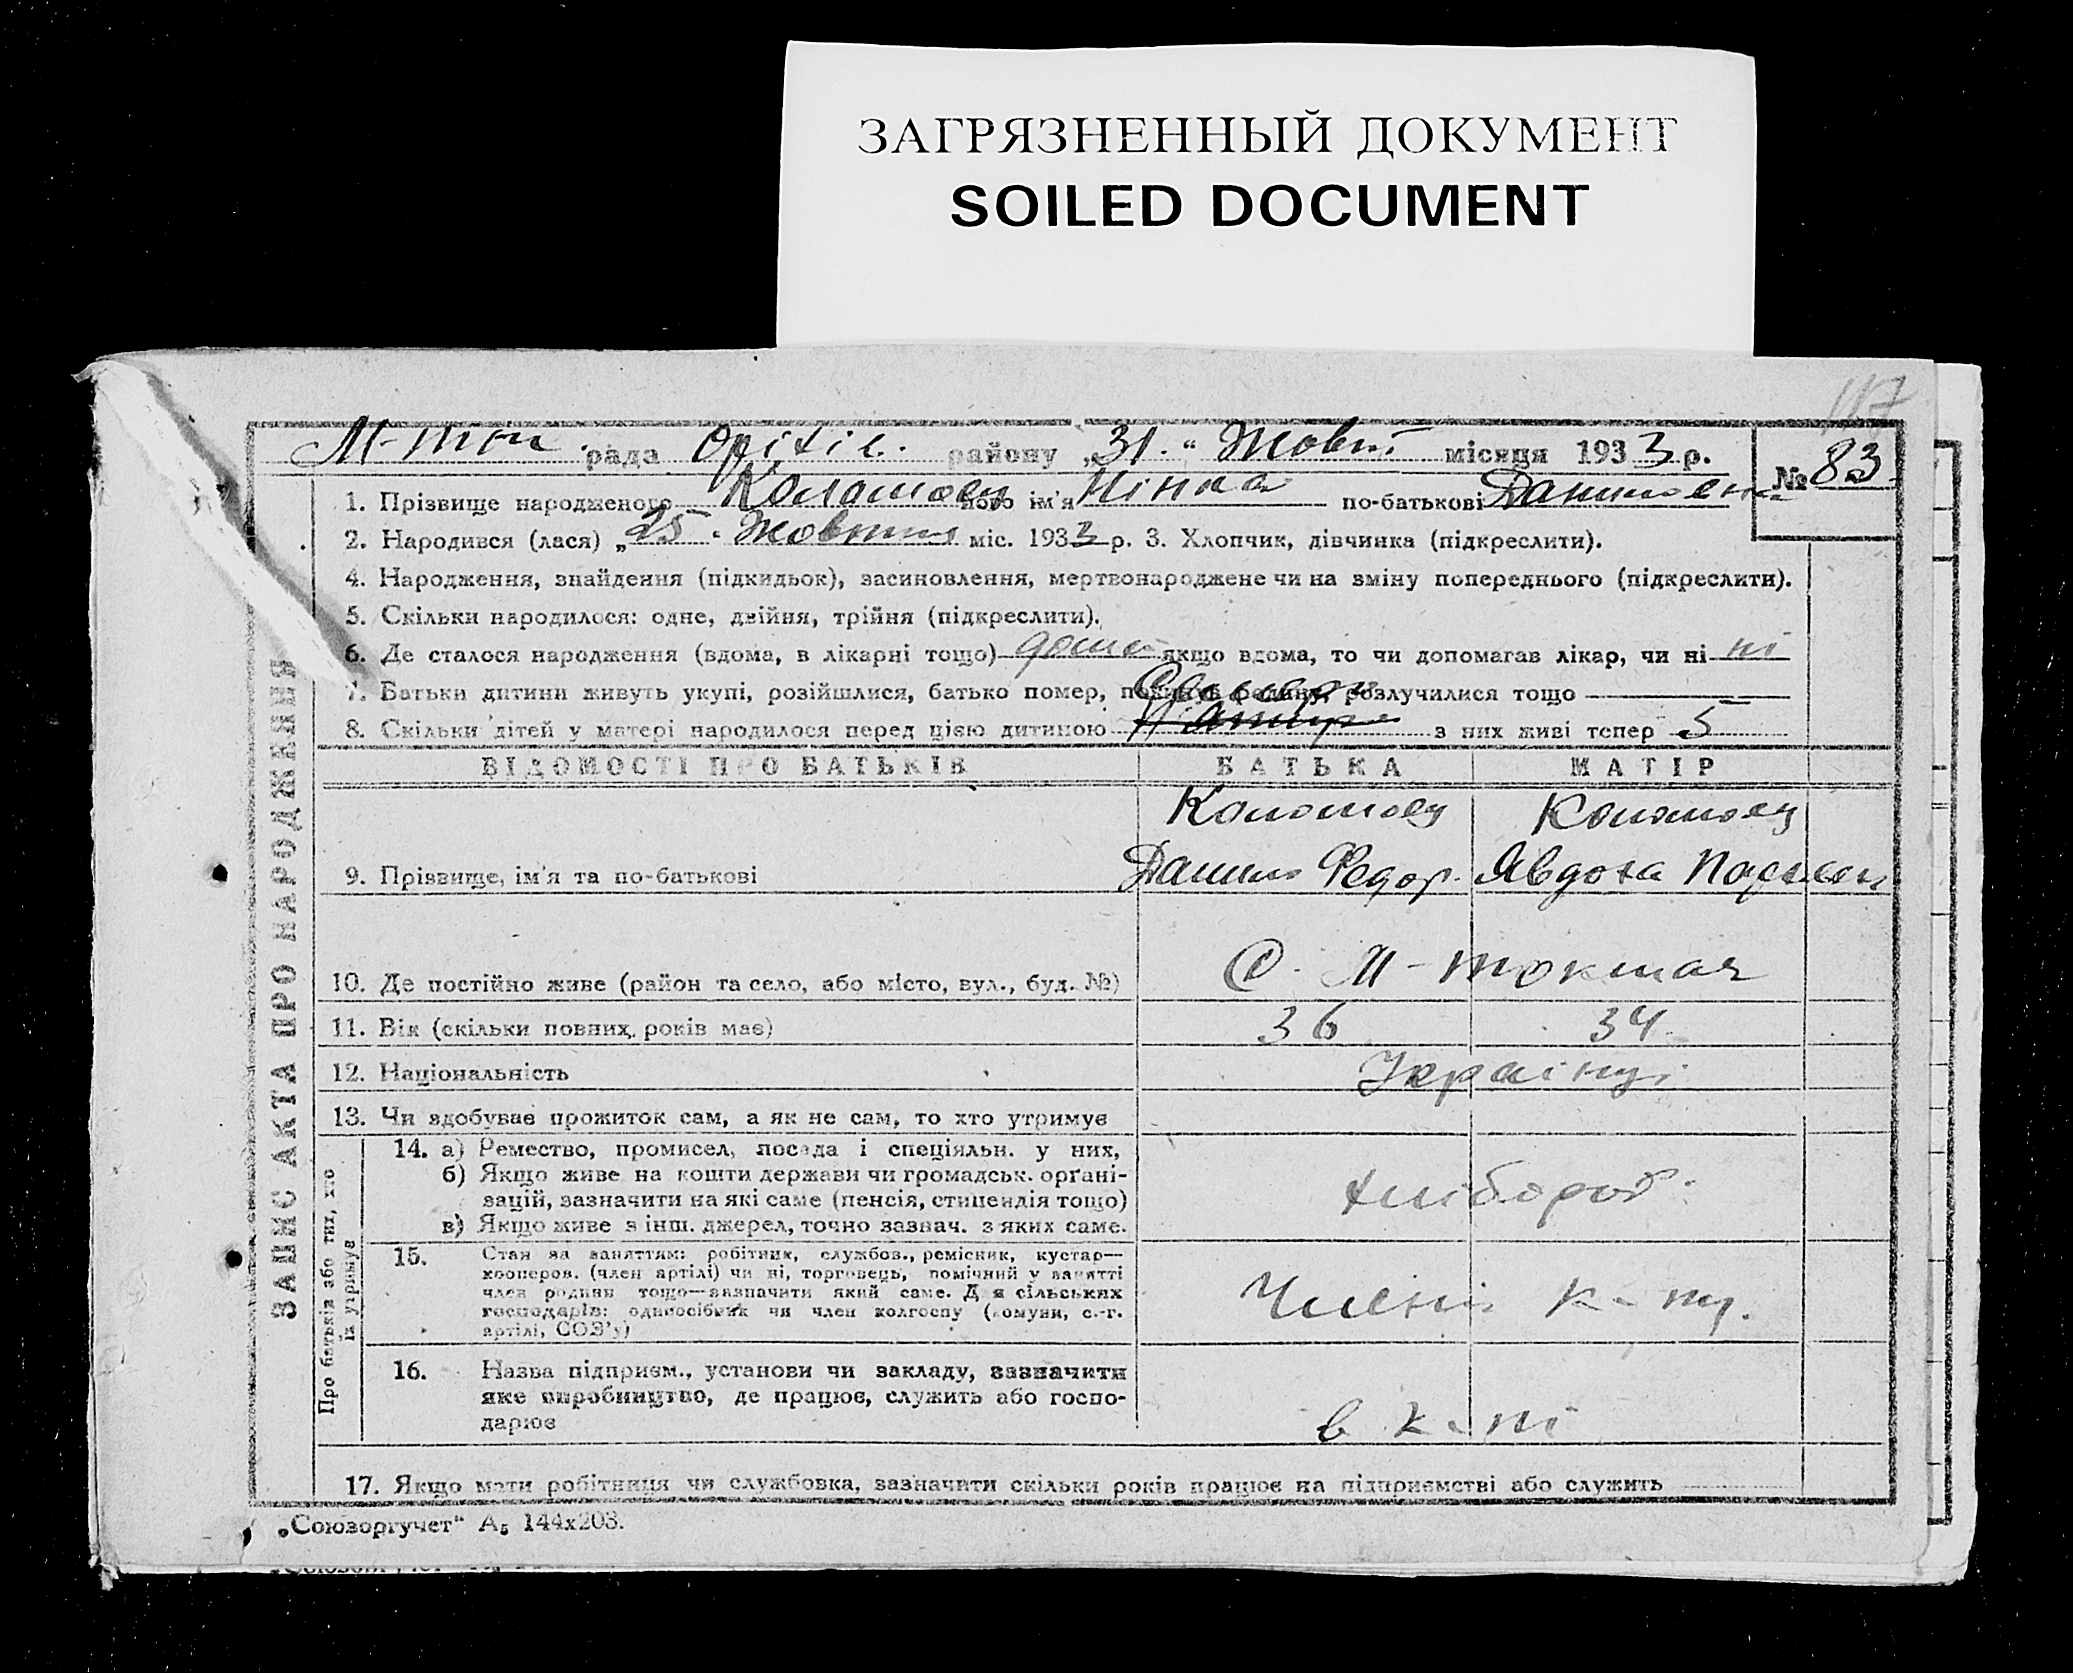 ЗАГРЯЗНЕННЫЙ ДОКУМЕНТ
SOILED DOCUMENT
117
М-ток. рада Оріхів. району „31.“ Жовт. місяця 1933 р.
№ 83
1. Прізвище народженого Коломоєц його ім'я Нінка по-батькові Данилвена
2. Народився (лася) „25. Жовтня міс. 1933 р. 3. Хлопчик, дівчинка (підкреслити).
4. Народження, знайдення (підкидьок), засиновлення, мертвонароджене чи на зміну попереднього (підкреслити).
5. Скільки народилося: одне, двійня, трійня (підкреслити).
6. Де сталося народження (вдома, в лікарні тощо) дома якщо вдома, то чи допомагав лікар, чи ні ні
7. Батьки дитини живуть укупі, розійшлися, батько помер, покинув родину, розлучилися тощо
8. Скільки дітей у матері народилося перед цією дитиною з них живі тепер 5
ВІДОМОСТІ ПРО БАТЬКІВ БАТЬКА МАТІР
Коломоєц Коломоєц
9. Прізвище, ім'я та по-батькові Данило Федор. Явдоха
10. Де постійно живе (район та село, або місто, вул., буд. №) С. М-токмач
11. Вік (скільки повних років має) 36 34
12. Національність Українці
13. Чи здобуває прожиток сам, а як не сам, то хто утримує
14. а) Ремество, промисел, посада і спеціяльн. у них,
б) Якщо живе на кошти держави чи громадськ. органі-
зацій, зазначити на які саме (пенсія, стипендія тощо)
в) Якщо живе з інш. джерел, точно зазнач. з яких саме.
хлібороб.
15. Стан за заняттям: робітник, службов., ремісник, кустар—
кооперов. (член артілі) чи ні, торговець, помічний у занятті
член родини тощо—зазначити який саме. Для сільських
господарів: одноосібник чи член колгоспу (комуни, с.-г.
артілі, СОЗ'у)
Члени к-ту.
16. Назва підприєм., установи чи закладу, зазначити
яке виробництво, де працює, служить або госпо-
дарює
в к-ті
17. Якщо мати робітниця чи службовка, зазначити скільки років працює на підприємстві або служить
ЗАПИС АКТА ПРО НАРОДЖЕННЯ
Про батьків або тих, хто
їх утримує
„Союзоргучет“ А₅ 144х203.